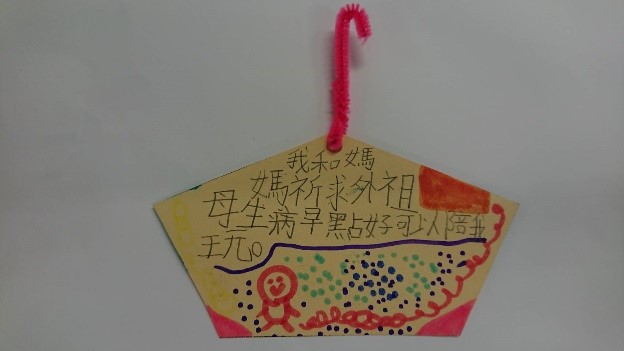 我和媽
媽祈求外祖
母生病早點好可以陪我
玩。